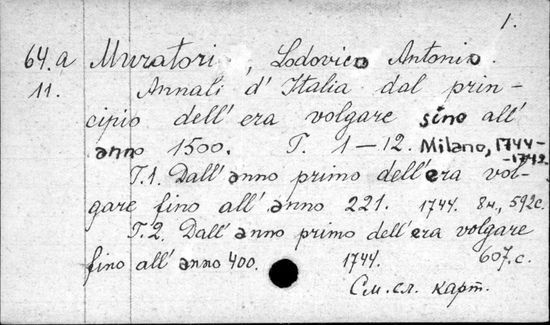 1.
64.a Muratori, Lodovico Antonio.
11. Annali d' Italia dal prin-
cipio dell' era volgare sino all'
anno 1500. T. 1-12. Milano, 1744-
-1749.
T.1. Dall' anno primo dell' era vol-
gare fino all' anno 221. 1744. 8н., 592с.
T.2. Dall' anno primo dell' era volgare
fino all' anno 400. 1744. 607.с.
См. сл. карт.